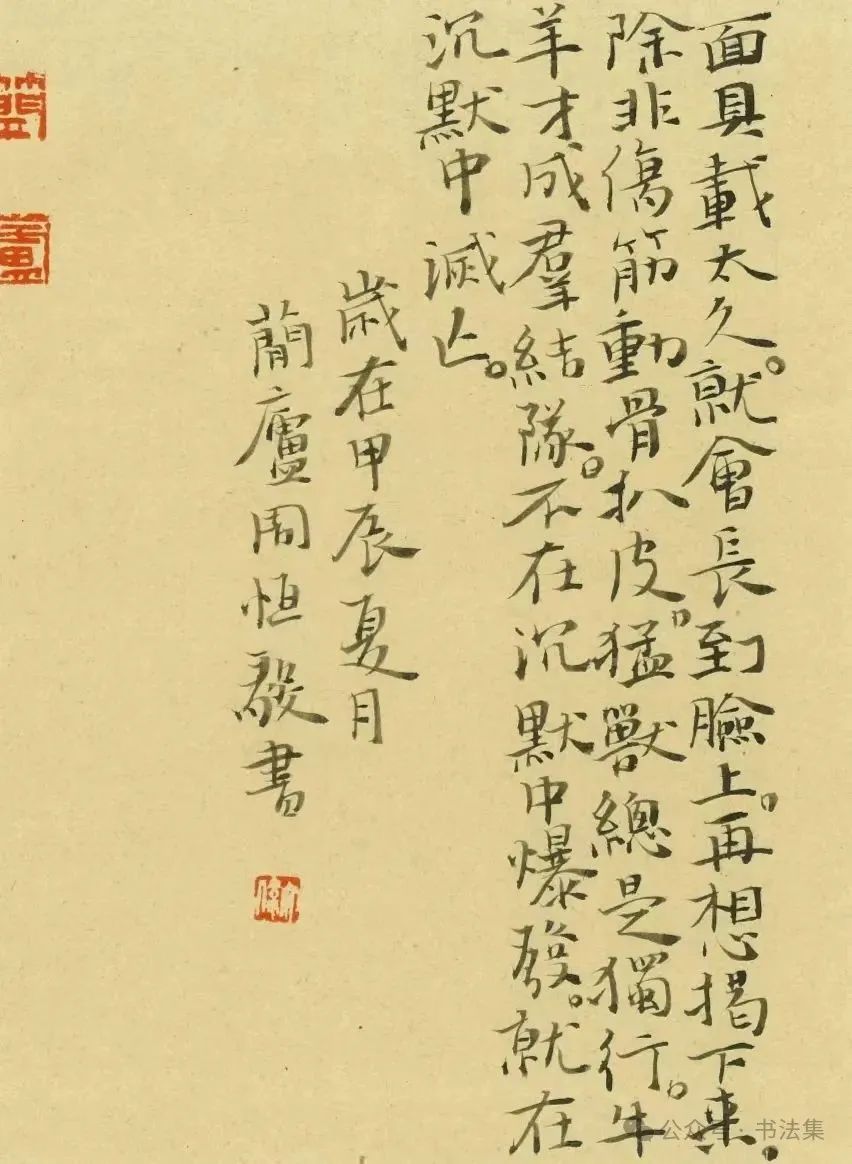 面具載太久。就會長到臉上。再想揭下来。
除非傷筋動骨扒皮。猛獸總是獨行。牛
羊才成羣結隊。不在沉默中爆發。就在
沉默中滅亡。
歲在甲辰夏月
蕳廬周恒毅書
公众号·书法集